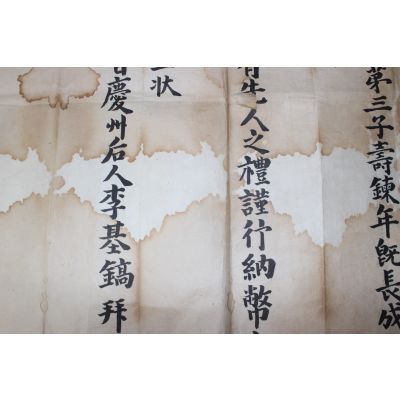 第三子壽鍊年旣長成
先人之禮謹行納幣
狀
慶州后人李基鎬拜